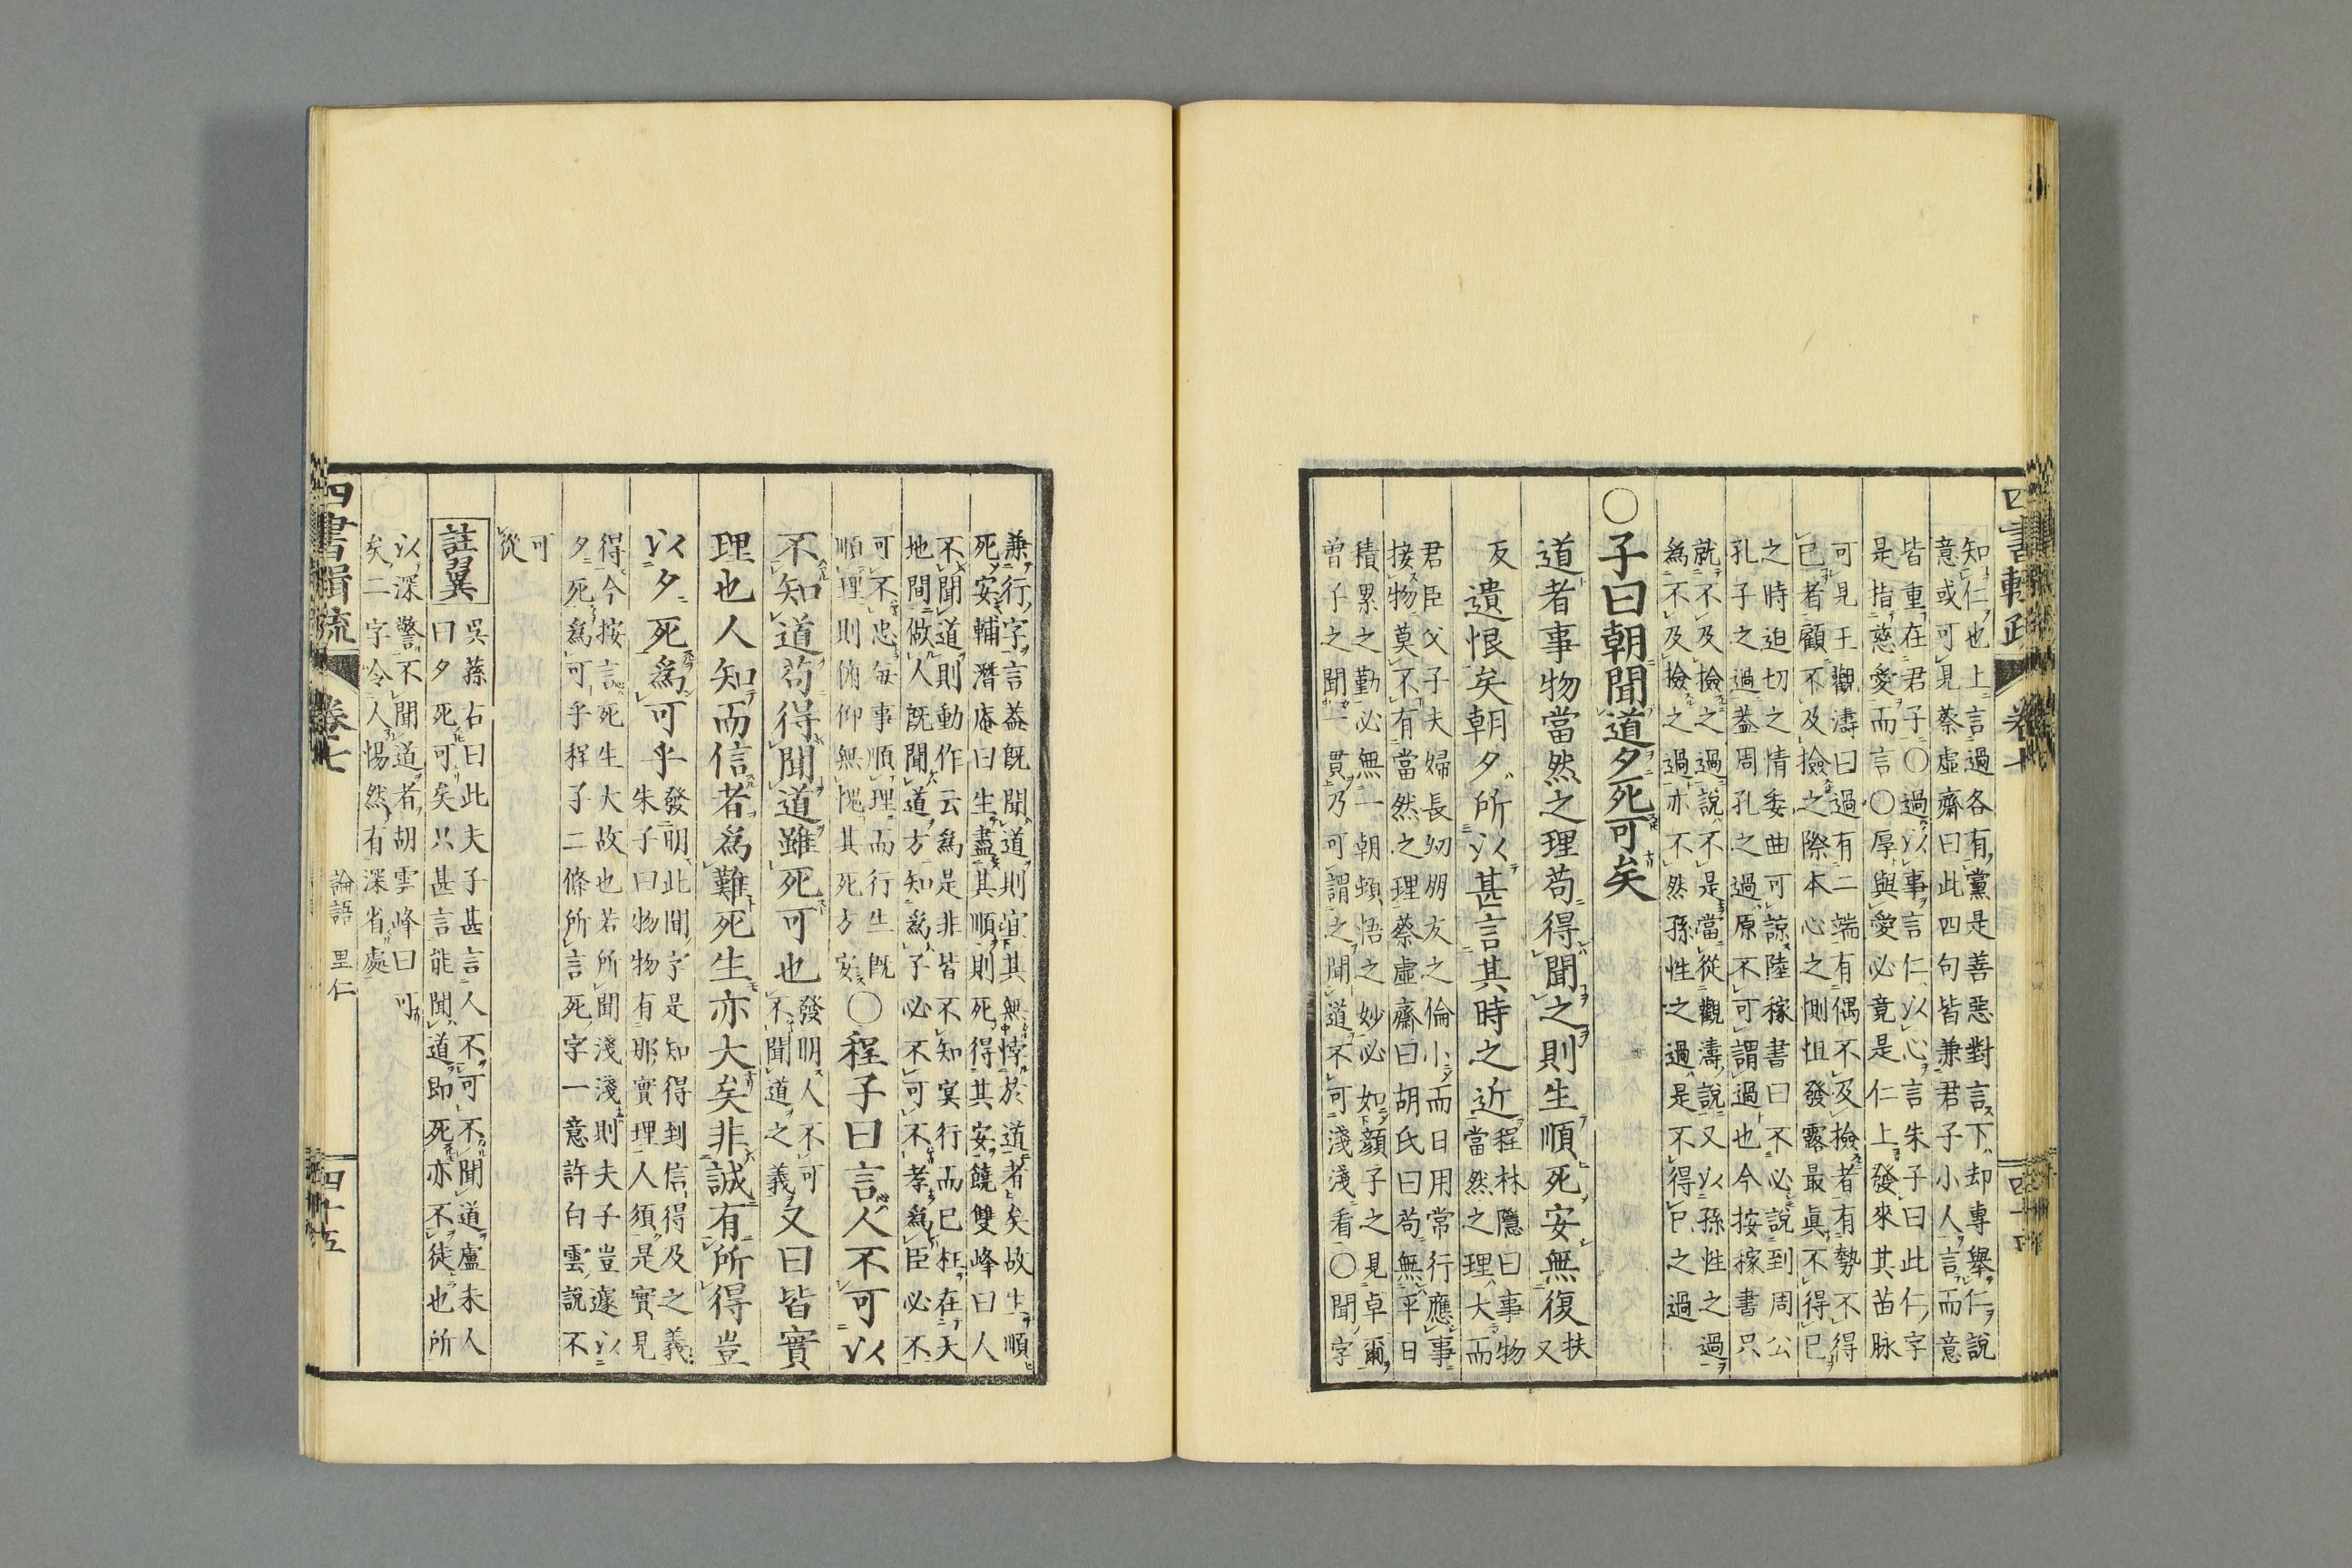 四書輯疏 卷七 四十四
知仁也上言過各有黨是善惡對言下却專舉仁說
意或可見蔡虛齋曰此四句皆兼君子小人言而意
皆重在君子〇過以事言仁以心言朱子曰此仁字
是指慈愛而言〇厚與愛必竟是仁上發來其苗脉
可見王觀濤曰過有二端有偶不及撿者有勢不得
已者顧不及撿之際本心之惻怛發露最眞不得已
之時迫切之情委曲可諒陸稼書曰不必說到周公
孔子之過蓋周孔之過原不可謂過也今按稼書只
就不及撿之過說不是當從觀濤說又以孫性之過
爲不及撿之過亦不然孫性之過是不得已之過
〇子曰朝聞道夕死可矣
道者事物當然之理苟得聞之則生順死安無復扶又
反遺恨矣朝夕所以甚言其時之近程林隱曰事物當然之理大而
君臣父子夫婦長幼朋友之倫小而日用常行應事
接物莫不有當然之理蔡虛齋曰胡氏曰苟無平日
積累之勤必無一朝頓悟之妙必如顏子之見卓爾
曾子之聞一貫乃可謂之聞道不可淺淺看〇聞字
兼行字言蓋既聞道則宜其無悖於道者矣故生順
死安輔潛庵曰生盡其順則死得其安饒雙峰曰人
不聞道則動作云爲是非皆不知冥行而已枉在天
地間做人既聞道方知爲子必不可不孝爲臣必不
可不忠每事順理而行生既
順理則俯仰無愧其死方安〇程子曰言人不可以
不知道苟得聞道雖死可也發明人不可不聞道之義又曰皆實
理也人知而信者爲難死生亦大矣非誠有所得豈
以夕死爲可乎發明此聞字是知得到信得及之義朱子曰物物有那實理人須是實見
得今按言死生大故也若所聞淺淺則夫子豈遽以
夕死爲可乎程子二條所言死字一意許白雲說不
可
從
註翼吳蓀右曰此夫子甚言人不可不聞道盧未人
曰夕死可矣只甚言能聞道即死亦不徒也所
以深警不聞道者胡雲峰曰可
矣二字令人惕然有深省處
四書輯疏 卷七 論語 里仁 四十五